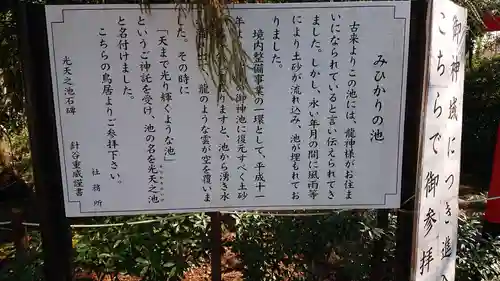 みひかりの池
古来よりこの池には、龍神様がお住ま
いになられていると言い伝えられてき
ました。しかし、永い年月の間に風雨等
により土砂が流れ込み、池が埋もれてお
りました。
境内整備事業の一環として、平成十一
年よ
の御神池に復元すべく土砂
りますと、池から湧き水
龍のような雲が空を覆いま
した。その時に
「天まで光り輝くような池」
というご神託を受け、池の名を光天之池
と名付けました。
こちらの鳥居よりご参拝下さい。
社務所
光天之池石碑
針谷重威謹書
御神域につき進入
こちらで御参拝